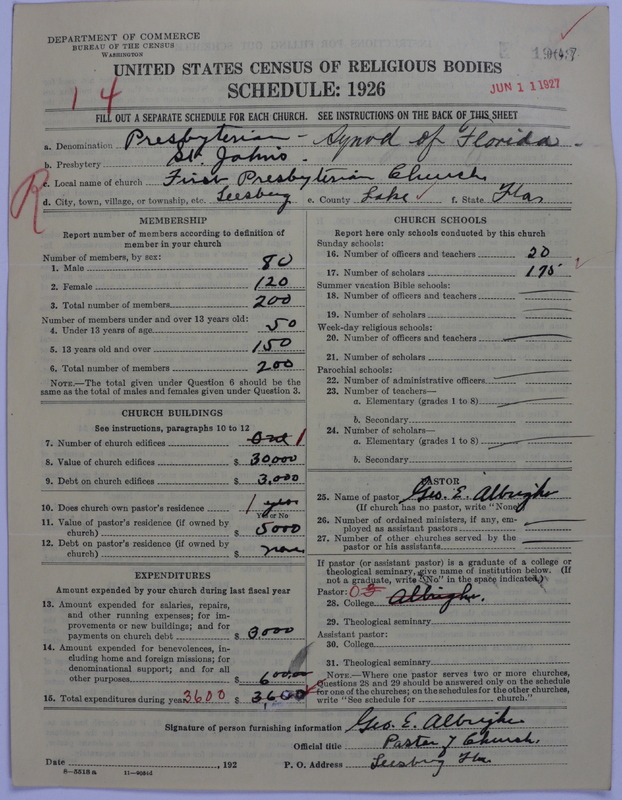 DEPARTMENT OF COMMERCE
BUREAU OF THE CENSUS
WASHINGTON
UNITED STATES CENSUS OF RELIGIOUS BODIES
JUN 11 1927
SCHEDULE: 1926
14
FILL OUT A SEPARATE SCHEDULE FOR EACH CHURCH. SEE INSTRUCTIONS ON THE BACK OF THIS SHEET
a. Denomination Presbyterian - Synod of Florida.
b. Presbytery St. Johns.
c. Local name of church First Presbyterian Church
d. City, town, village, or township, etc. Leesburg e. County Lake f. State Fla
R
MEMBERSHIP
Report number of members according to definition of
member in your church
Number of members, by sex:
1. Male 80
2. Female 120
3. Total number of members 200
Number of members under and over 13 years old:
4. Under 13 years of age 50
5. 13 years old and over 150
6. Total number of members 200
NOTE.—The total given under Question 6 should be
the same as the total of males and females given under Question 3.
CHURCH BUILDINGS
See instructions, paragraphs 10 to 12
7. Number of church edifices 1
8. Value of church edifices $ 30,000
9. Debt on church edifices $ 3,000
10. Does church own pastor's residence 1 yes
Yes or No
11. Value of pastor's residence (if owned by
church) $ 5000
12. Debt on pastor's residence (if owned by
church) $ none
EXPENDITURES
Amount expended by your church during last fiscal year
13. Amount expended for salaries, repairs,
and other running expenses; for im-
provements or new buildings; and for
payments on church debt $ 3000
14. Amount expended for benevolences, in-
cluding home and foreign missions; for
denominational support; and for all
other purposes $ 600.00
15. Total expenditures during year 3600 $ 3,600
CHURCH SCHOOLS
Report here only schools conducted by this church
Sunday schools:
16. Number of officers and teachers 20
17. Number of scholars 175
Summer vacation Bible schools:
18. Number of officers and teachers
19. Number of scholars
Week-day religious schools:
20. Number of officers and teachers
21. Number of scholars
Parochial schools:
22. Number of administrative officers
23. Number of teachers—
a. Elementary (grades 1 to 8)
b. Secondary
24. Number of scholars—
a. Elementary (grades 1 to 8)
b. Secondary
PASTOR
25. Name of pastor Geo. E. Albright
(If church has no pastor, write "None")
26. Number of ordained ministers, if any, em-
ployed as assistant pastors
27. Number of other churches served by the
pastor or his assistants
If pastor (or assistant pastor) is a graduate of a college or
theological seminary, give name of institution below. (If
not a graduate, write "No" in the space indicated.)
Pastor:
28. College Albright.
29. Theological seminary
Assistant pastor:
30. College
31. Theological seminary
NOTE.—Where one pastor serves two or more churches,
Questions 28 and 29 should be answered only on the schedule
for one of the churches; on the schedules for the other churches,
write "See schedule for church."
Signature of person furnishing information Geo. E. Albright
Official title Pastor of Church.
Date , 192 P. O. Address Leesburg Fla.
8-5513a 11-9034d